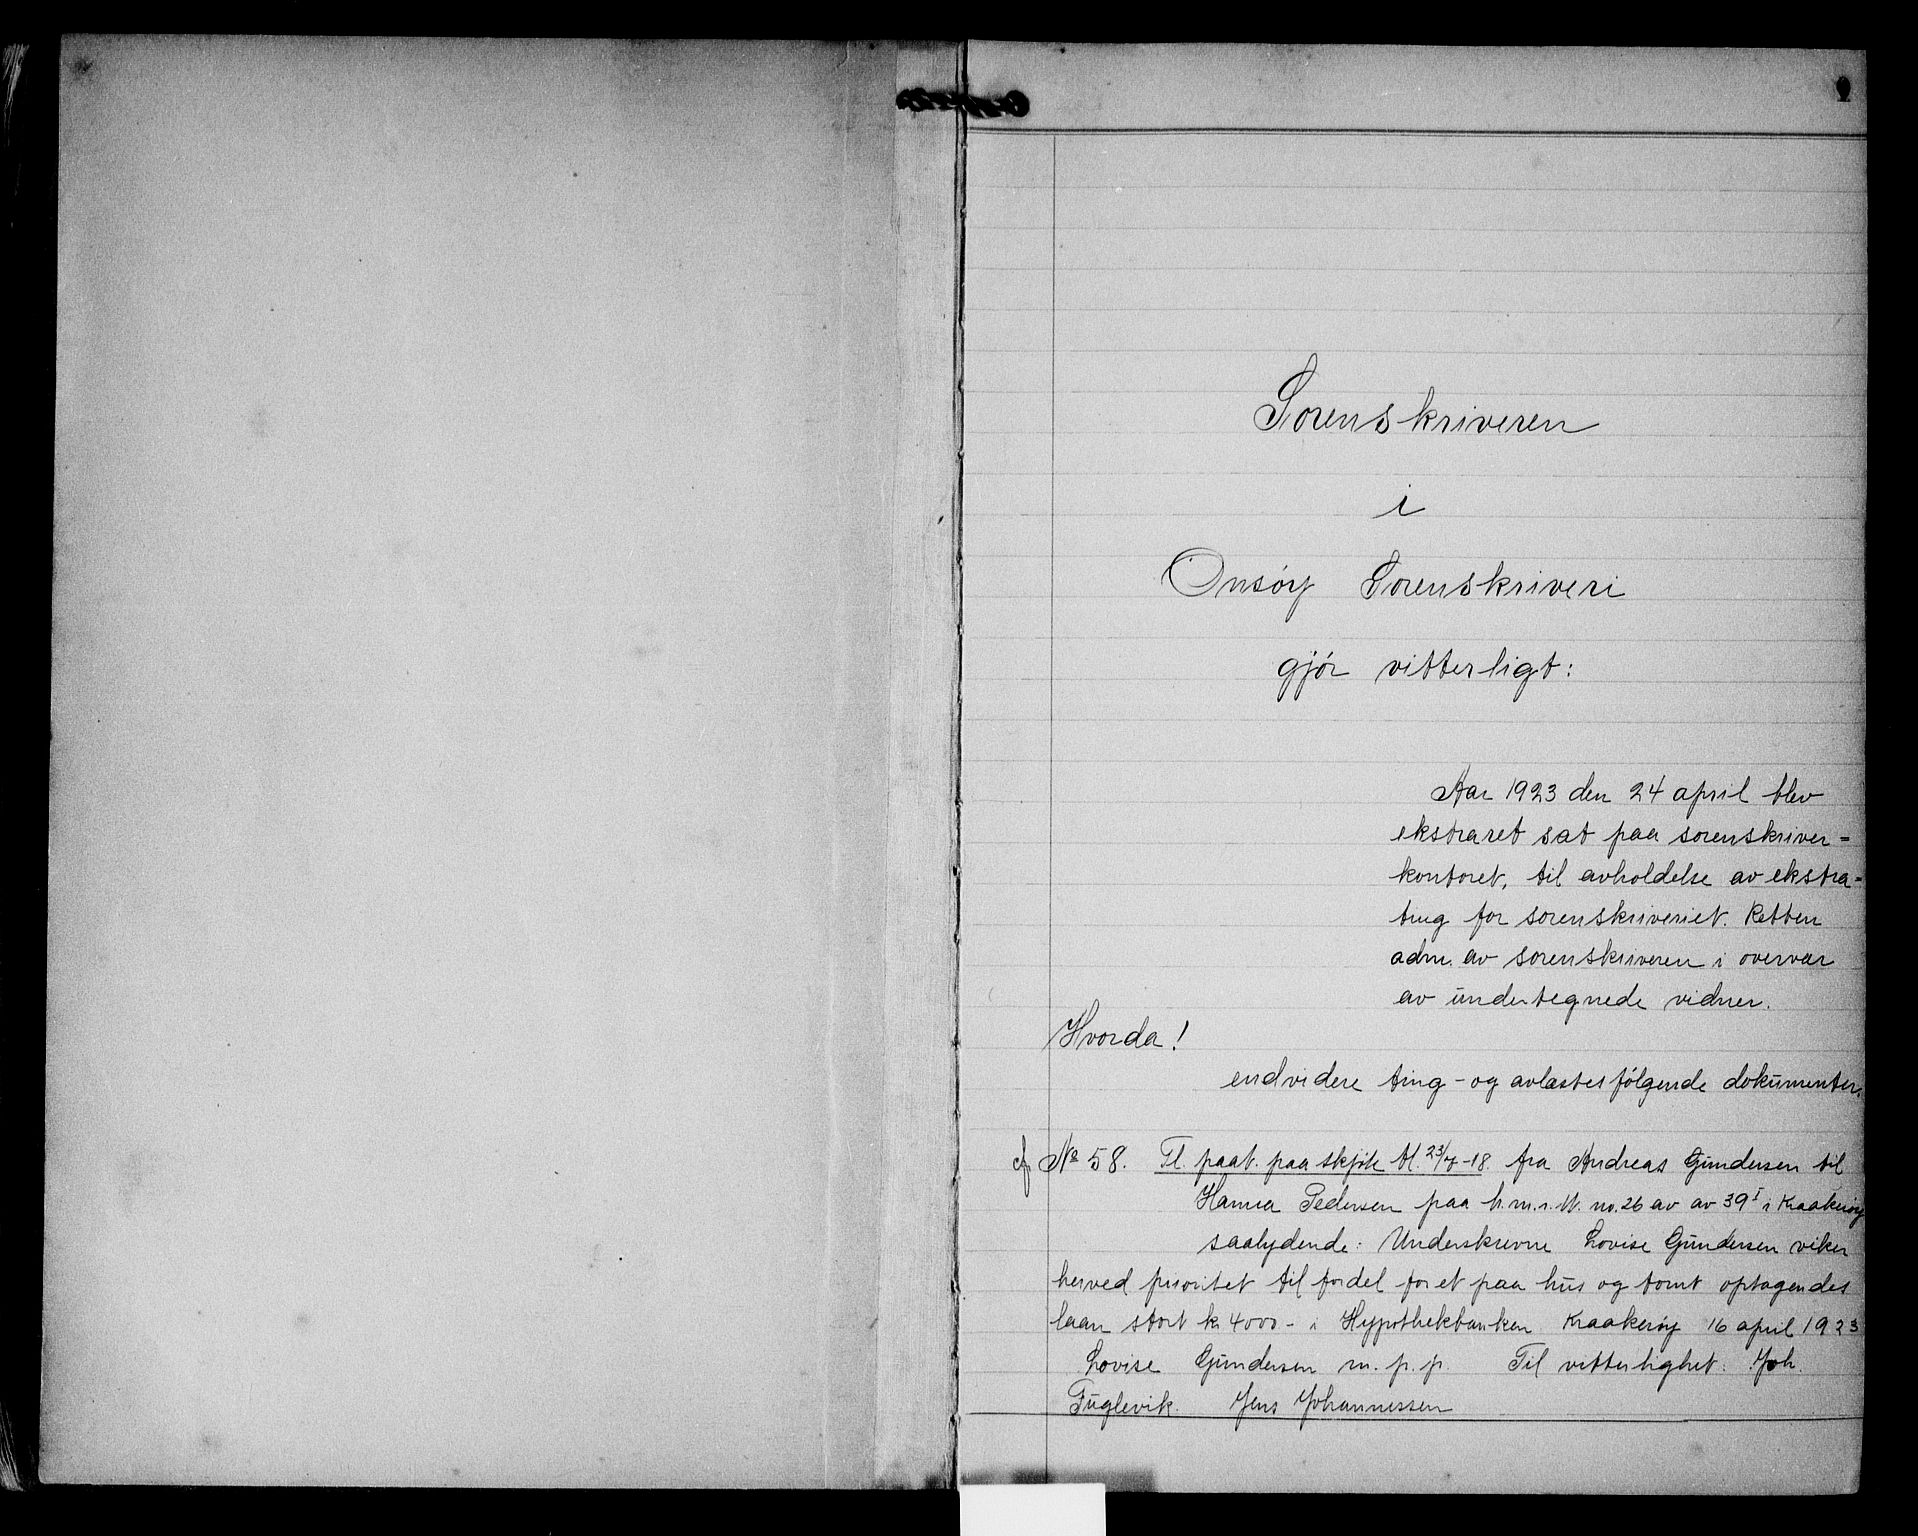 Sorenskriveren
i
Onsøy Sorenskriveri
gjør vitterligt:
Aar 1923 den 24 april blev
ekstraret sat paa sorenskriver=
kontoret, til avholdelse av ekstra=
ting for sorenskriveriet. Retten
adm. av sorenskriveren i overvær
av undertegnede vidner.
Hvorda!
endvidere ting- og avlæstes følgende dokumenter.
№ 58. Tl. paat. paa skjøte tl. 23/7-18. fra Andreas Gundersen til
Hanna Pedersen paa h.m.r.N. no. 26 av av 39 I i Kraakerøy
saalydende: Underskrevne Lovise Gundersen viker
herved prioritet til fordel for et paa hus og tomt optagendes
laan stort kr 4000- i Hypothekbanken Kraakerøy 16 april 1923
Lovise Gundersen m. p. p. Til vitterlighet: Joh.
Fuglevik. Jens Johannessen